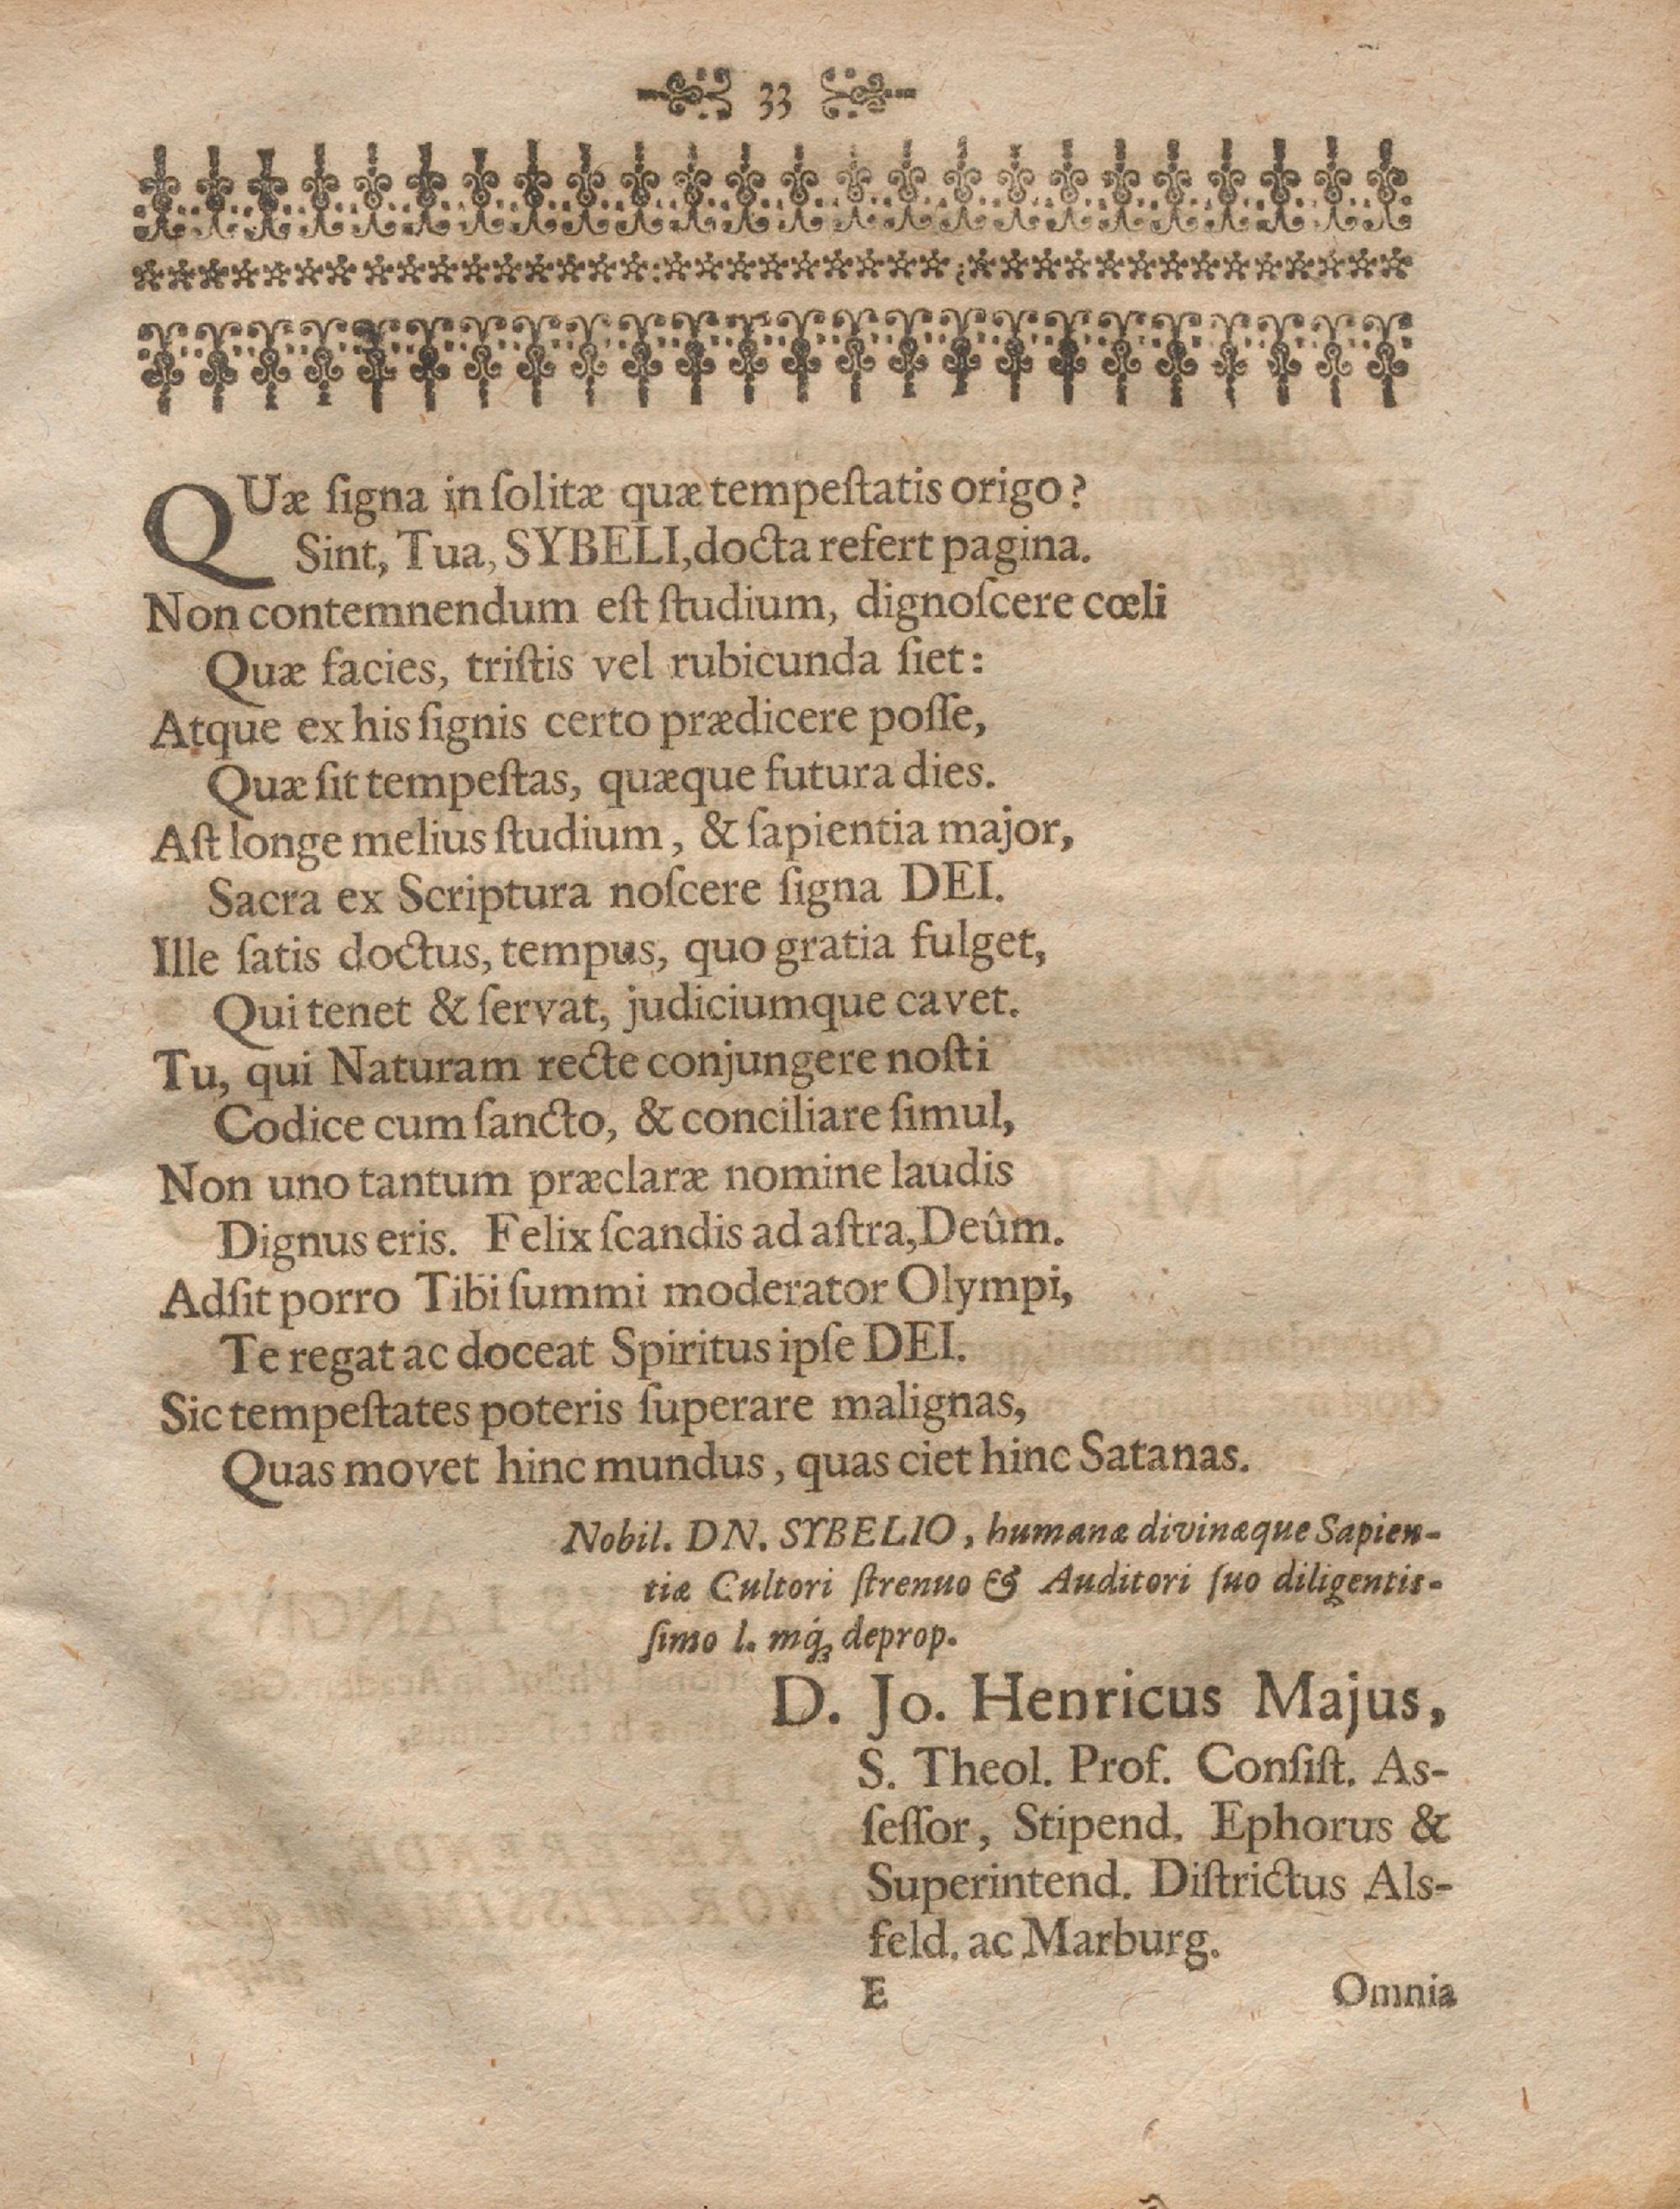 33
QUæ ſigna inſolitæ quæ tempeſtatis origo?
Sint, Tua, SYBELI, docta refert pagina.
Non contemnendum eſt ſtudium, dignoſcere cœli
Quæ facies, triſtis vel rubicunda ſiet:
Atque ex his ſignis certo prædicere poſſe,
Quæ ſit tempeſtas, quæque futura dies.
Aſt longe melius ſtudium, & ſapientia major,
Sacra ex Scriptura noſcere ſigna DEI.
Ille ſatis doctus, tempus, quo gratia fulget,
Qui tenet & ſervat, judiciumque cavet.
Tu, qui Naturam recte conjungere noſti
Codice cum ſancto, & conciliare ſimul,
Non uno tantum præclaræ nomine laudis
Dignus eris. Felix ſcandis ad aſtra, Deûm.
Adſit porro Tibi ſummi moderator Olympi,
Te regat ac doceat Spiritus ipſe DEI.
Sic tempeſtates poteris ſuperare malignas,
Quas movet hinc mundus, quas ciet hinc Satanas.
Nobil. DN. SYBELIO, humanæ divinæque Sapien-
tiæ Cultori ſtrenuo & Auditori ſuo diligentis-
ſimo l. mq́; deprop.
D. Jo. Henricus Majus,
S. Theol. Prof. Conſiſt. As-
ſeſſor, Stipend. Ephorus &
Superintend. Diſtrictus Als-
feld. ac Marburg.
E Omnia